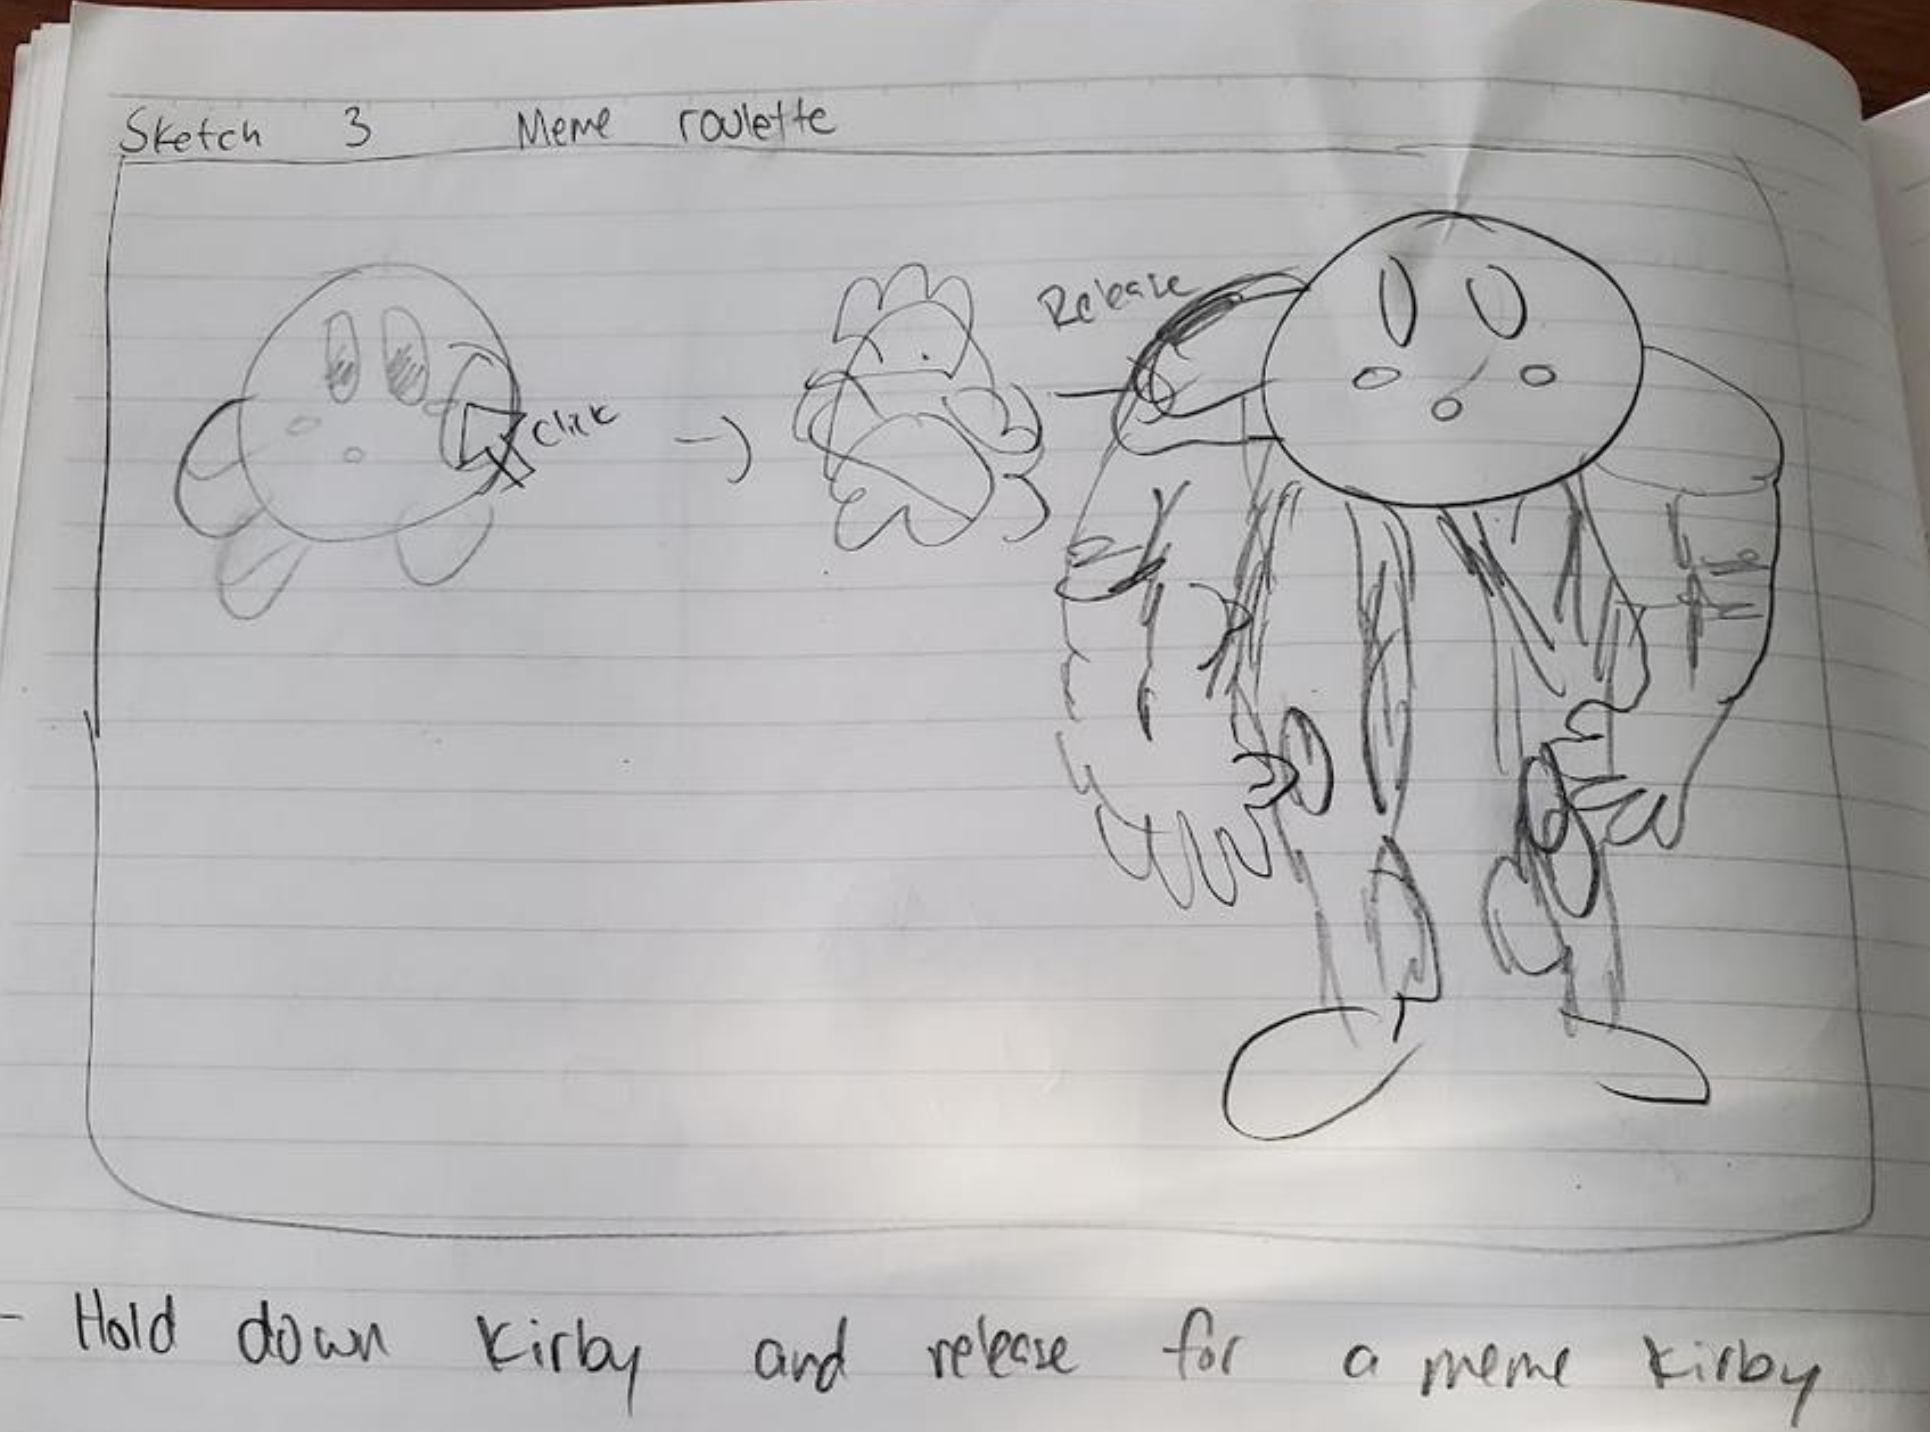 Sketch 3 Meme roulette
Click
Release
- Hold down Kirby and release for a meme Kirby